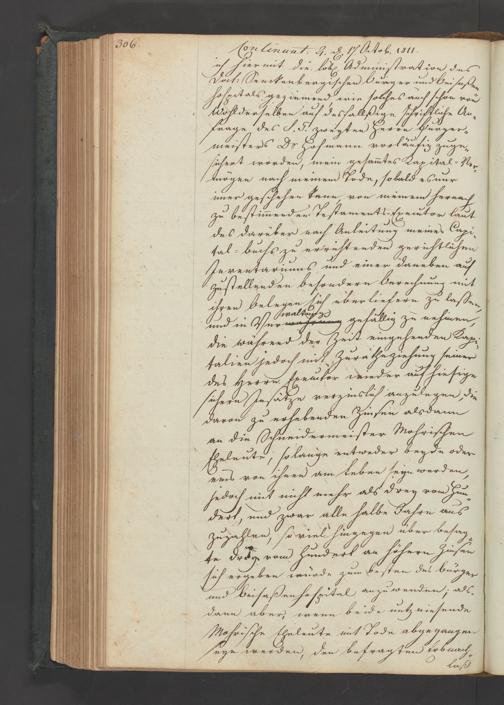 306
Continuat: d. d. 17 Octob. 1811.
ich hiermit die löbl. Administration des
Doct: Senckenbergischen Bürger und Beisaßen
hospitals geziemend, wie solches auch schon von
Wohlderselben auf desfallsige schriftliche An-
frage des S. T. zweyten Herrn Bürger-
meisters Dr Hofmann vorläufig zuge-
sichert worden, mein gesamtes Kapital-Ver-
mögen nach meinem Tode, sobald es nur
immer geschehen kann, von meinem hernach
zu bestimmenden Testaments-Executor laut
des darüber nach Anleitung meines Capi-
tal-buchs zu errichtenden gerichtlichen
Inventariums und einer daneben auf
zustellenden besondern Berechnung mit
ihren Belegen sich überliefern zu lassen,
und in Verwaltung gefällig zu nehmen
die während der Zeit eingehenden Kapi-
talien jedoch mit Zurathziehung
des Herrn Executor wieder auf hiesige
sichere Insätze verzinslich anzulegen, die
davon zu erhebenden Zinsen alsdann
an die Schneidermeister Mohrischen
Eheleute, solange entweder beyde oder
eins von ihnen am Leben seyn werden,
jedoch mit nicht mehr als drey vom Hun-
dert, und zwar alle halbe Jahre aus
zuzahlen, so viel hingegen über besag-
te drey vom Hundert an höhern Zinsen
sich ergeben würde zum besten des Bürger
und Beisaßenhospital anzuwenden, als-
dann aber, wenn beide nutzniesende
Mohrische Eheleute mit Tode abgegangen
seyn werden, den besagten Erbnach-
laß